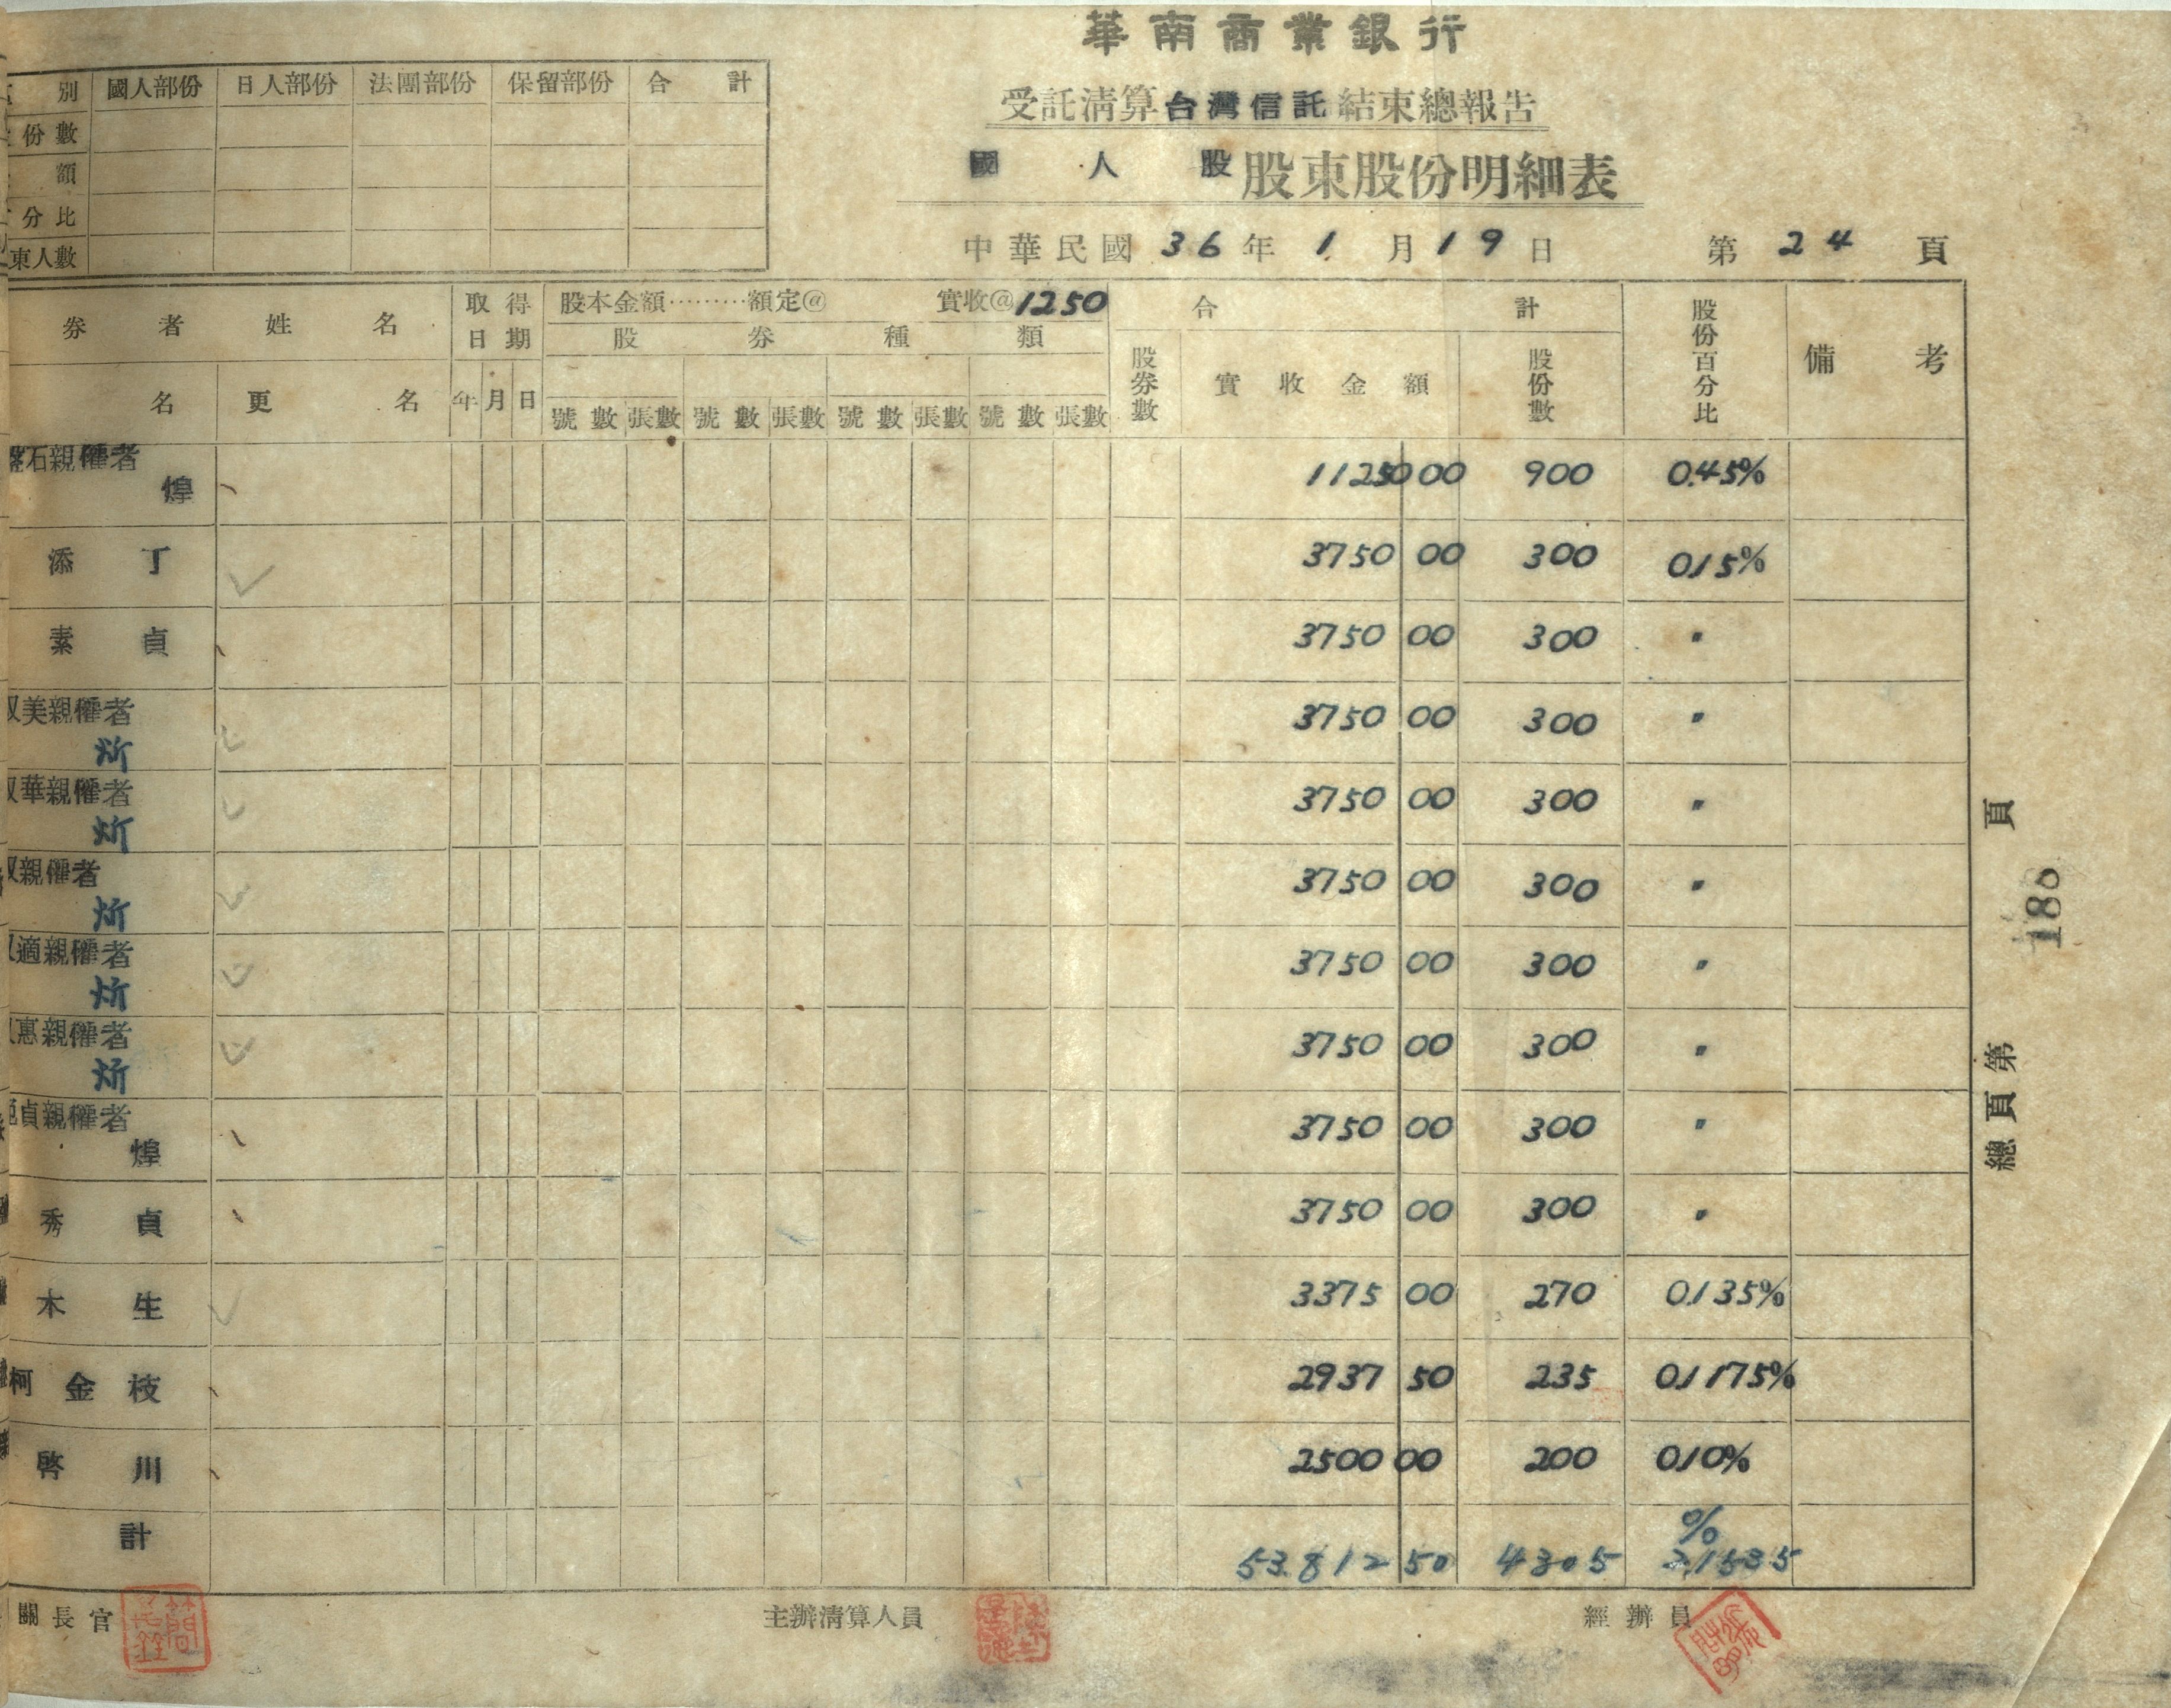 華南商業銀行
受託淸算台灣信託結束總報告
國人股股東股份明細表
中華民國36年1月19日 第24頁
別 國人部份 日人部份 法團部份 保留部份 合計
份數
額
分比
東人數
券者姓名 取得日期 股本金額………額定@ 實收@1250 合計 股份百分比 備考
股券種類
名 更名 年 月 日 號數 張數 號數 張數 號數 張數 號數 張數 股券數 實收金額 股份數
石親權者
煌 11250 00 900 0.45%
添丁 3750 00 300 0.15%
素貞 3750 00 300 〃
双美親權者
炘 3750 00 300 〃
双華親權者
炘 3750 00 300 〃
双親權者
炘 3750 00 300 〃
双適親權者
炘 3750 00 300 〃
双惠親權者
炘 3750 00 300 〃
貞親權者
煌 3750 00 300 〃
秀貞 3750 00 300 〃
木生 3375 00 270 0.135%
柯金枝 2937 50 235 0.1175%
啓川 2500 00 200 0.10%
計 53.812 50 4305 2.1535%
關長官 主辦淸算人員 經辦員
總頁第 180 頁